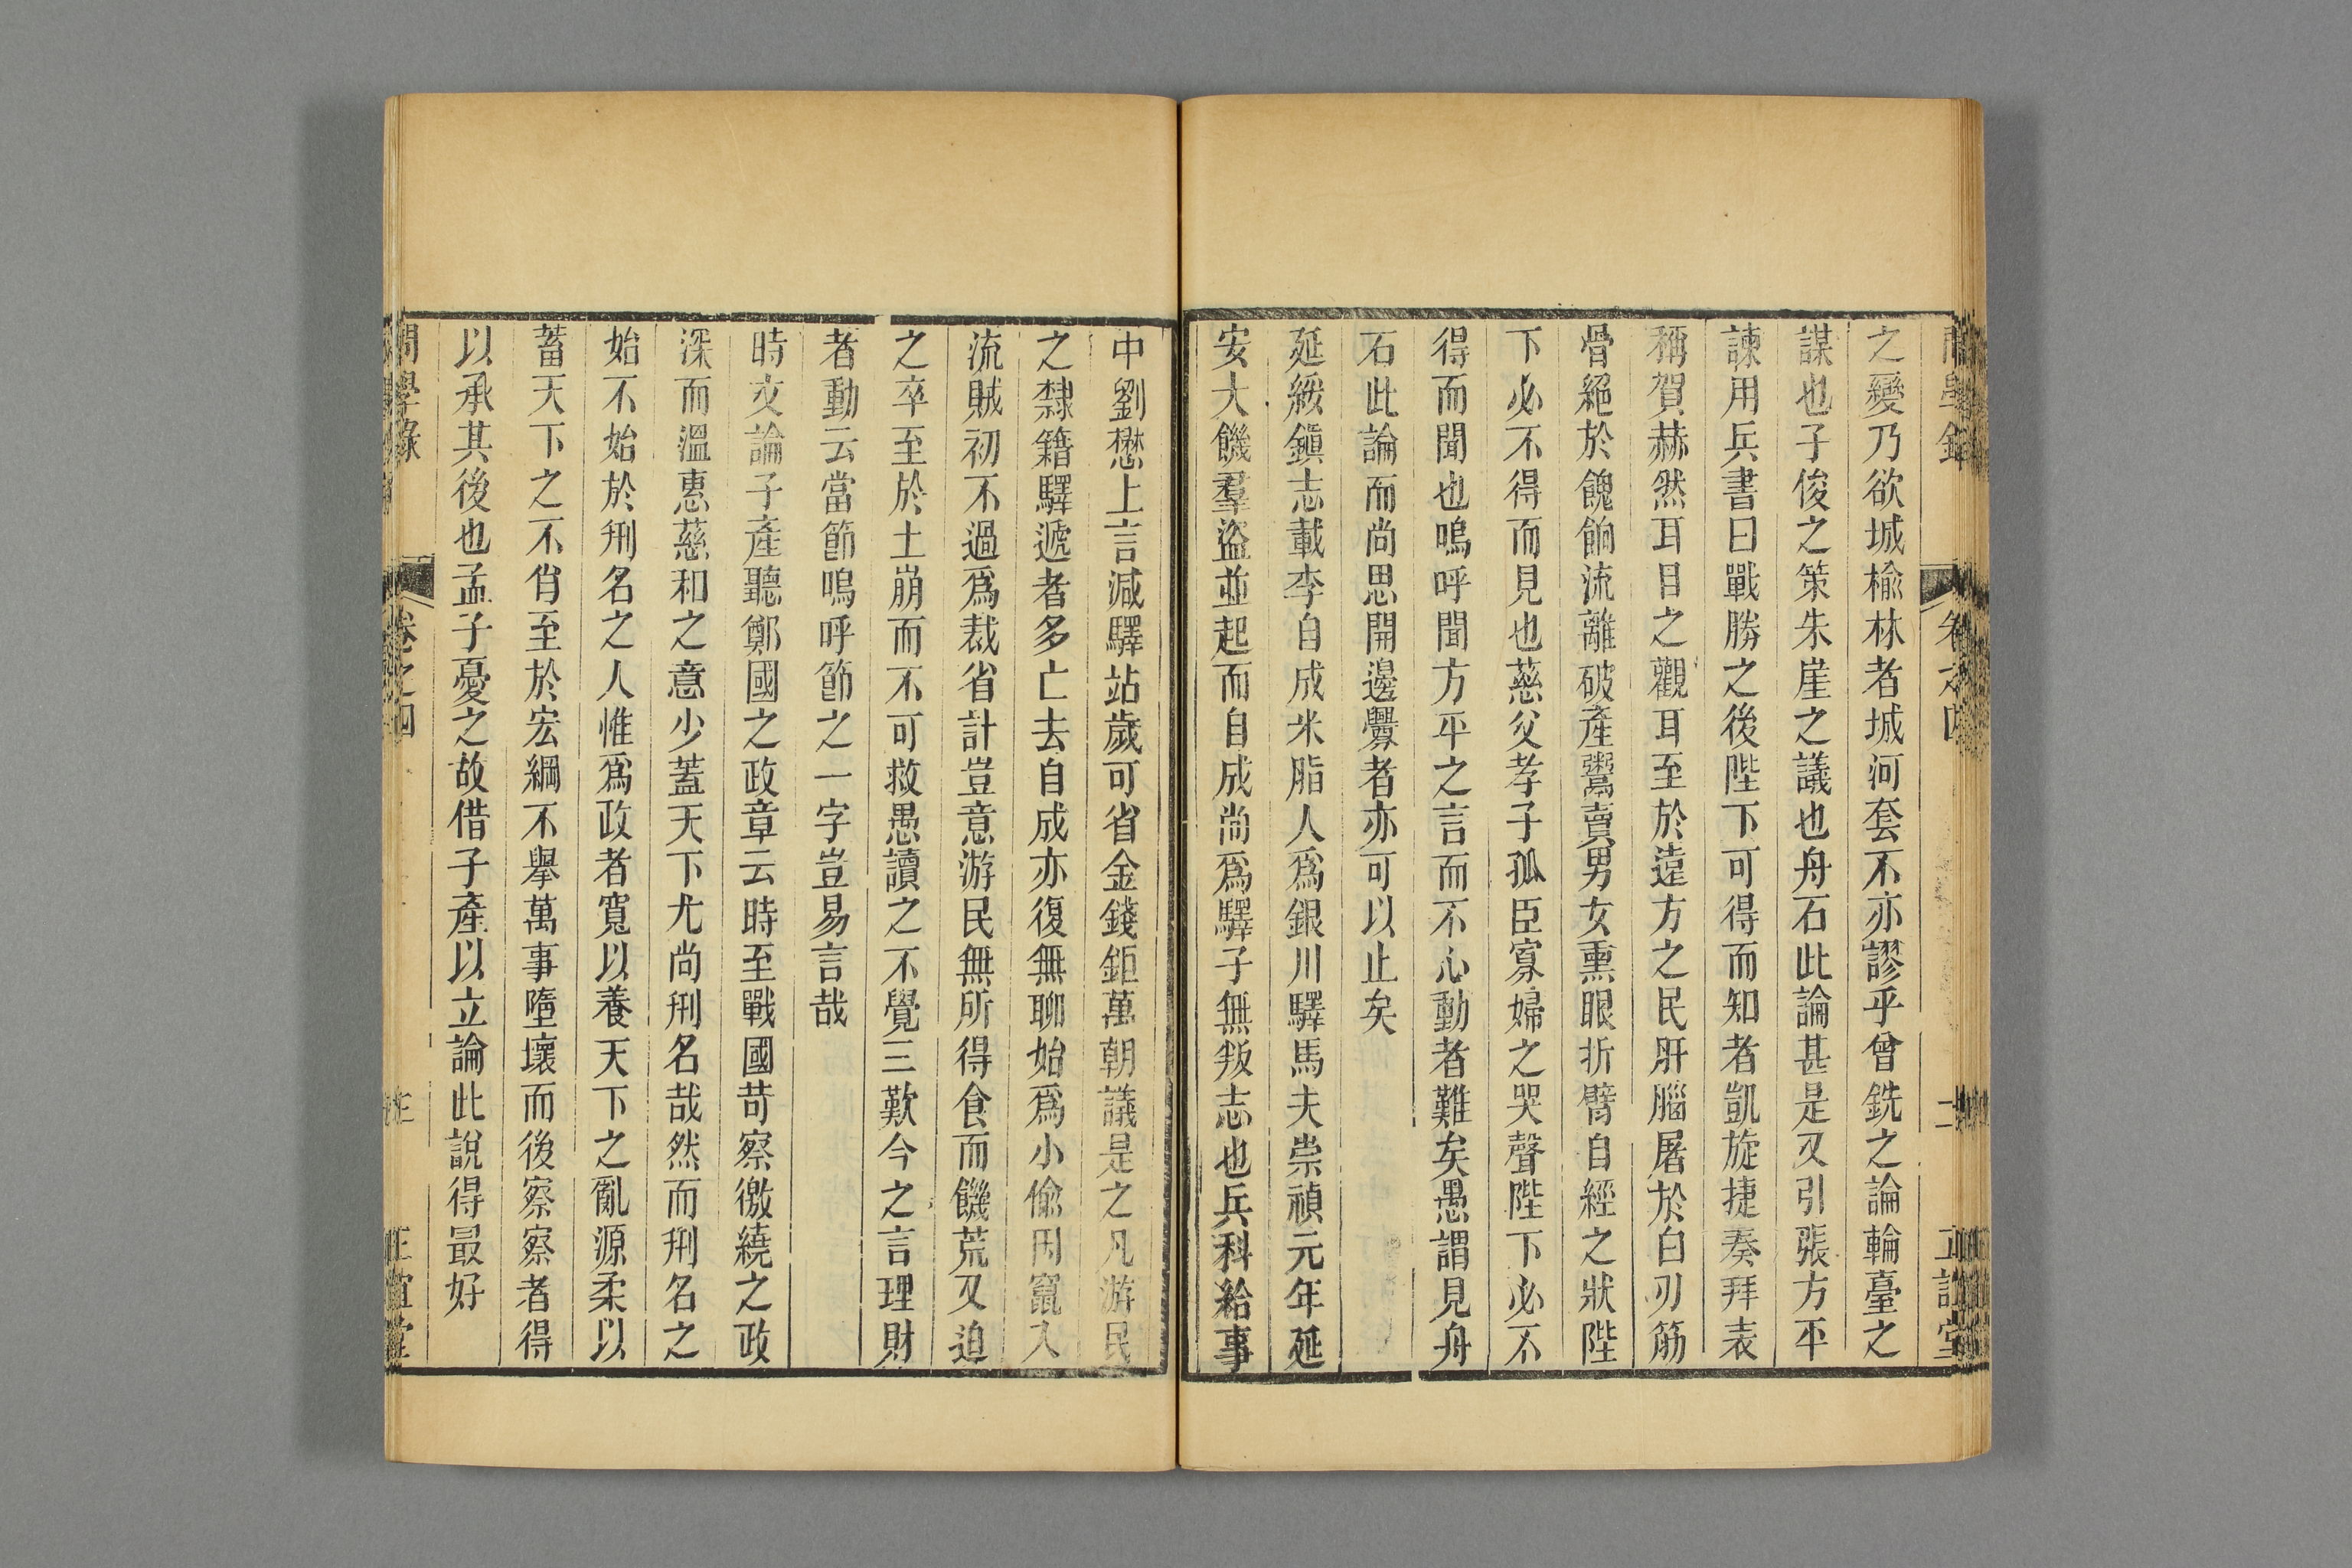 之變乃欲城榆林者城河套不亦謬乎曾銑之論輪臺之
謀也子俊之策朱崖之議也舟石此論甚是又引張方平
諫用兵書曰戰勝之後陛下可得而知者凱旋捷奏拜表
稱賀赫然耳目之觀耳至於遠方之民肝腦屠於白刃筋
骨絕於餽餉流離破產鬻賣男女熏眼折臂自經之狀陛
下必不得而見也慈父孝子孤臣寡婦之哭聲陛下必不
得而聞也嗚呼聞方平之言而不心動者難矣愚謂見舟
石此論而尚思開邊釁者亦可以止矣
延綏鎭志載李自成米脂人爲銀川驛馬夫崇禎元年延
安大饑羣盜並起而自成尚爲驛子無叛志也兵科給事
中劉懋上言減驛站歲可省金錢鉅萬朝議是之凡游民
之隸籍驛遞者多亡去自成亦復無聊始爲小偸因竄入
流賊初不過爲裁省計豈意游民無所得食而饑荒又迫
之卒至於土崩而不可救愚讀之不覺三歎今之言理財
者動云當節嗚呼節之一字豈易言哉
時文論子產聽鄭國之政章云時至戰國苛察徼繞之政
深而溫惠慈和之意少蓋天下尤尚刑名哉然而刑名之
始不始於刑名之人惟爲政者寬以養天下之亂源柔以
蓄天下之不肖至於宏綱不舉萬事墮壞而後察察者得
以承其後也孟子憂之故借子產以立論此說得最好
問學錄
卷之四
三
正誼堂